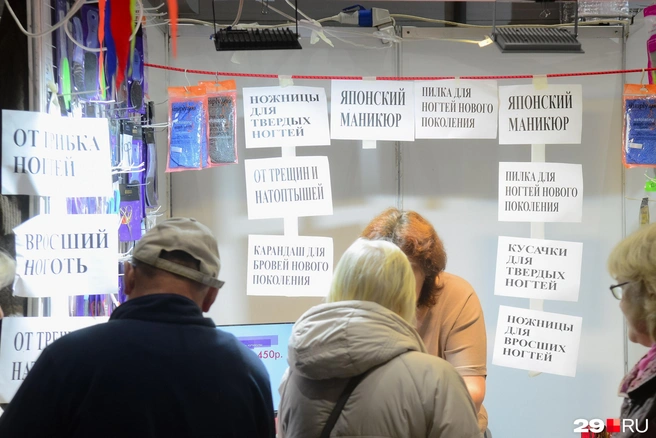 ОТ ГРИБКА
НОГТЕЙ
ВРОСШИЙ
НОГОТЬ
ОТ
НОЖНИЦЫ
ДЛЯ
ТВЕРДЫХ
НОГТЕЙ
ОТ ТРЕЩИН И
НАТОПТЫШЕЙ
КАРАНДАШ ДЛЯ
БРОВЕЙ НОВОГО
ПОКОЛЕНИЯ
ЯПОНСКИЙ
МАНИКЮР
ПИЛКА ДЛЯ
НОГТЕЙ НОВОГО
ПОКОЛЕНИЯ
ЯПОНСКИЙ
МАНИКЮР
ПИЛКА ДЛЯ
НОГТЕЙ НОВОГО
ПОКОЛЕНИЯ
КУСАЧКИ
ДЛЯ
ТВЕРДЫХ
НОГТЕЙ
НОЖНИЦЫ
ДЛЯ
ВРОСШИХ
НОГТЕЙ
450р.
29.RU